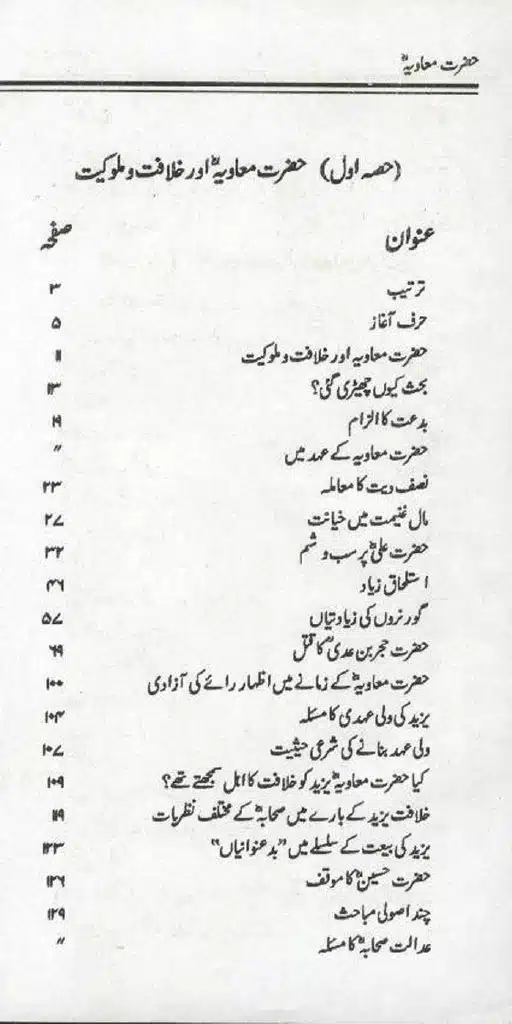 حضرت معاویہؓ
(حصہ اول) حضرت معاویہؓ اور خلافت و ملوکیت
عنوان صفحہ
ترتیب ۳
حرف آغاز ۵
حضرت معاویہ اور خلافت و ملوکیت ۱۱
بحث کیوں چھیڑی گئی؟ ۱۳
بدعت کا الزام ۱۹
حضرت معاویہ کے عہد میں ״
نصف دیت کا معاملہ ۲۳
مال غنیمت میں خیانت ۲۷
حضرت علیؓ پر سب و شتم ۳۲
استلحاق زیاد ۴۶
گورنروں کی زیادتیاں ۵۷
حضرت حجر بن عدیؓ کا قتل ۶۹
حضرت معاویہؓ کے زمانے میں اظہار رائے کی آزادی ۱۰۰
یزید کی ولی عہدی کا مسئلہ ۱۰۴
ولی عہد بنانے کی شرعی حیثیت ۱۰۷
کیا حضرت معاویہؓ یزید کو خلافت کا اہل سمجھتے تھے؟ ۱۰۹
خلافت یزید کے بارے میں صحابہؓ کے مختلف نظریات ۱۱۹
یزید کی بیعت کے سلسلے میں "بدعنوانیاں" ۱۲۳
حضرت حسینؓ کا موقف ۱۲۶
چند اصولی مباحث ۱۲۹
عدالت صحابہؓ کا مسئلہ ״